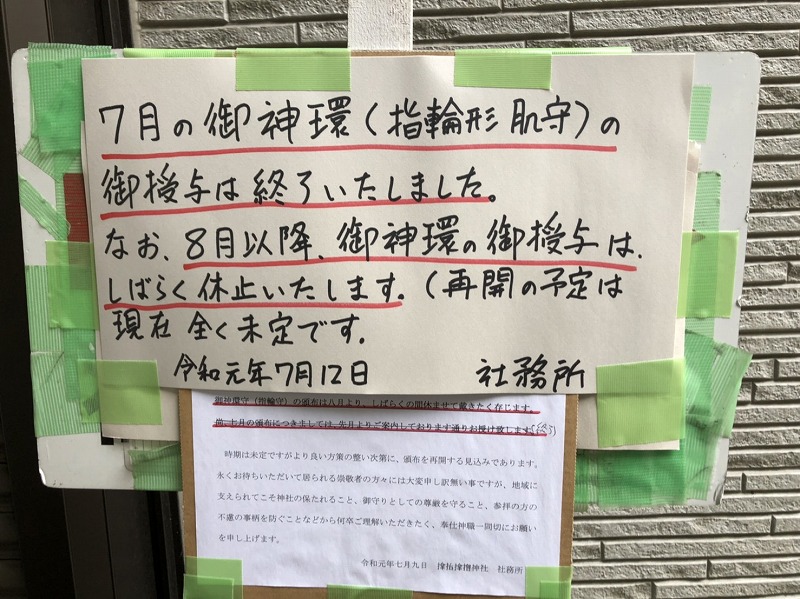 7月の御神環(指輪形 肌守)の
御授与は終了いたしました。
なお、8月以降、御神環の御授与は、
しばらく休止いたします。(再開の予定は
現在 全く未定です。
令和元年7月12日 社務所
御神環守(指輪守)の頒布は八月より、しばらくの間休ませて戴きたく存じます。
尚、七月の頒布につきましては、先月よりご案内しております通りお授け致します(終了)
時期は未定ですがより良い方策の整い次第に、頒布を再開する見込みであります。
永くお待ちいただいて居られる崇敬者の方々には大変申し訳無い事ですが、地域に
支えられてこそ神社の保たれること、御守りとしての尊厳を守ること、参拝の方の
不慮の事柄を防ぐことなどから何卒ご理解いただきたく、奉仕神職一同切にお願い
を申し上げます。
令和元年七月九日 神社 社務所